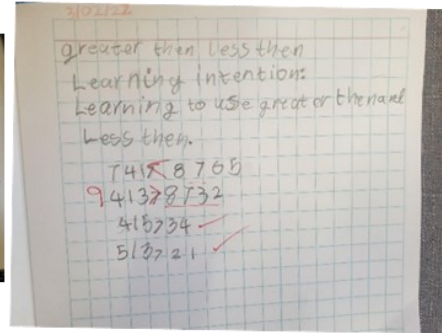 3/02/22
greater then less then
Learning intention:
Learning to use great or then and
Less then.
741< 8765
9413>8732
415>34
513>21